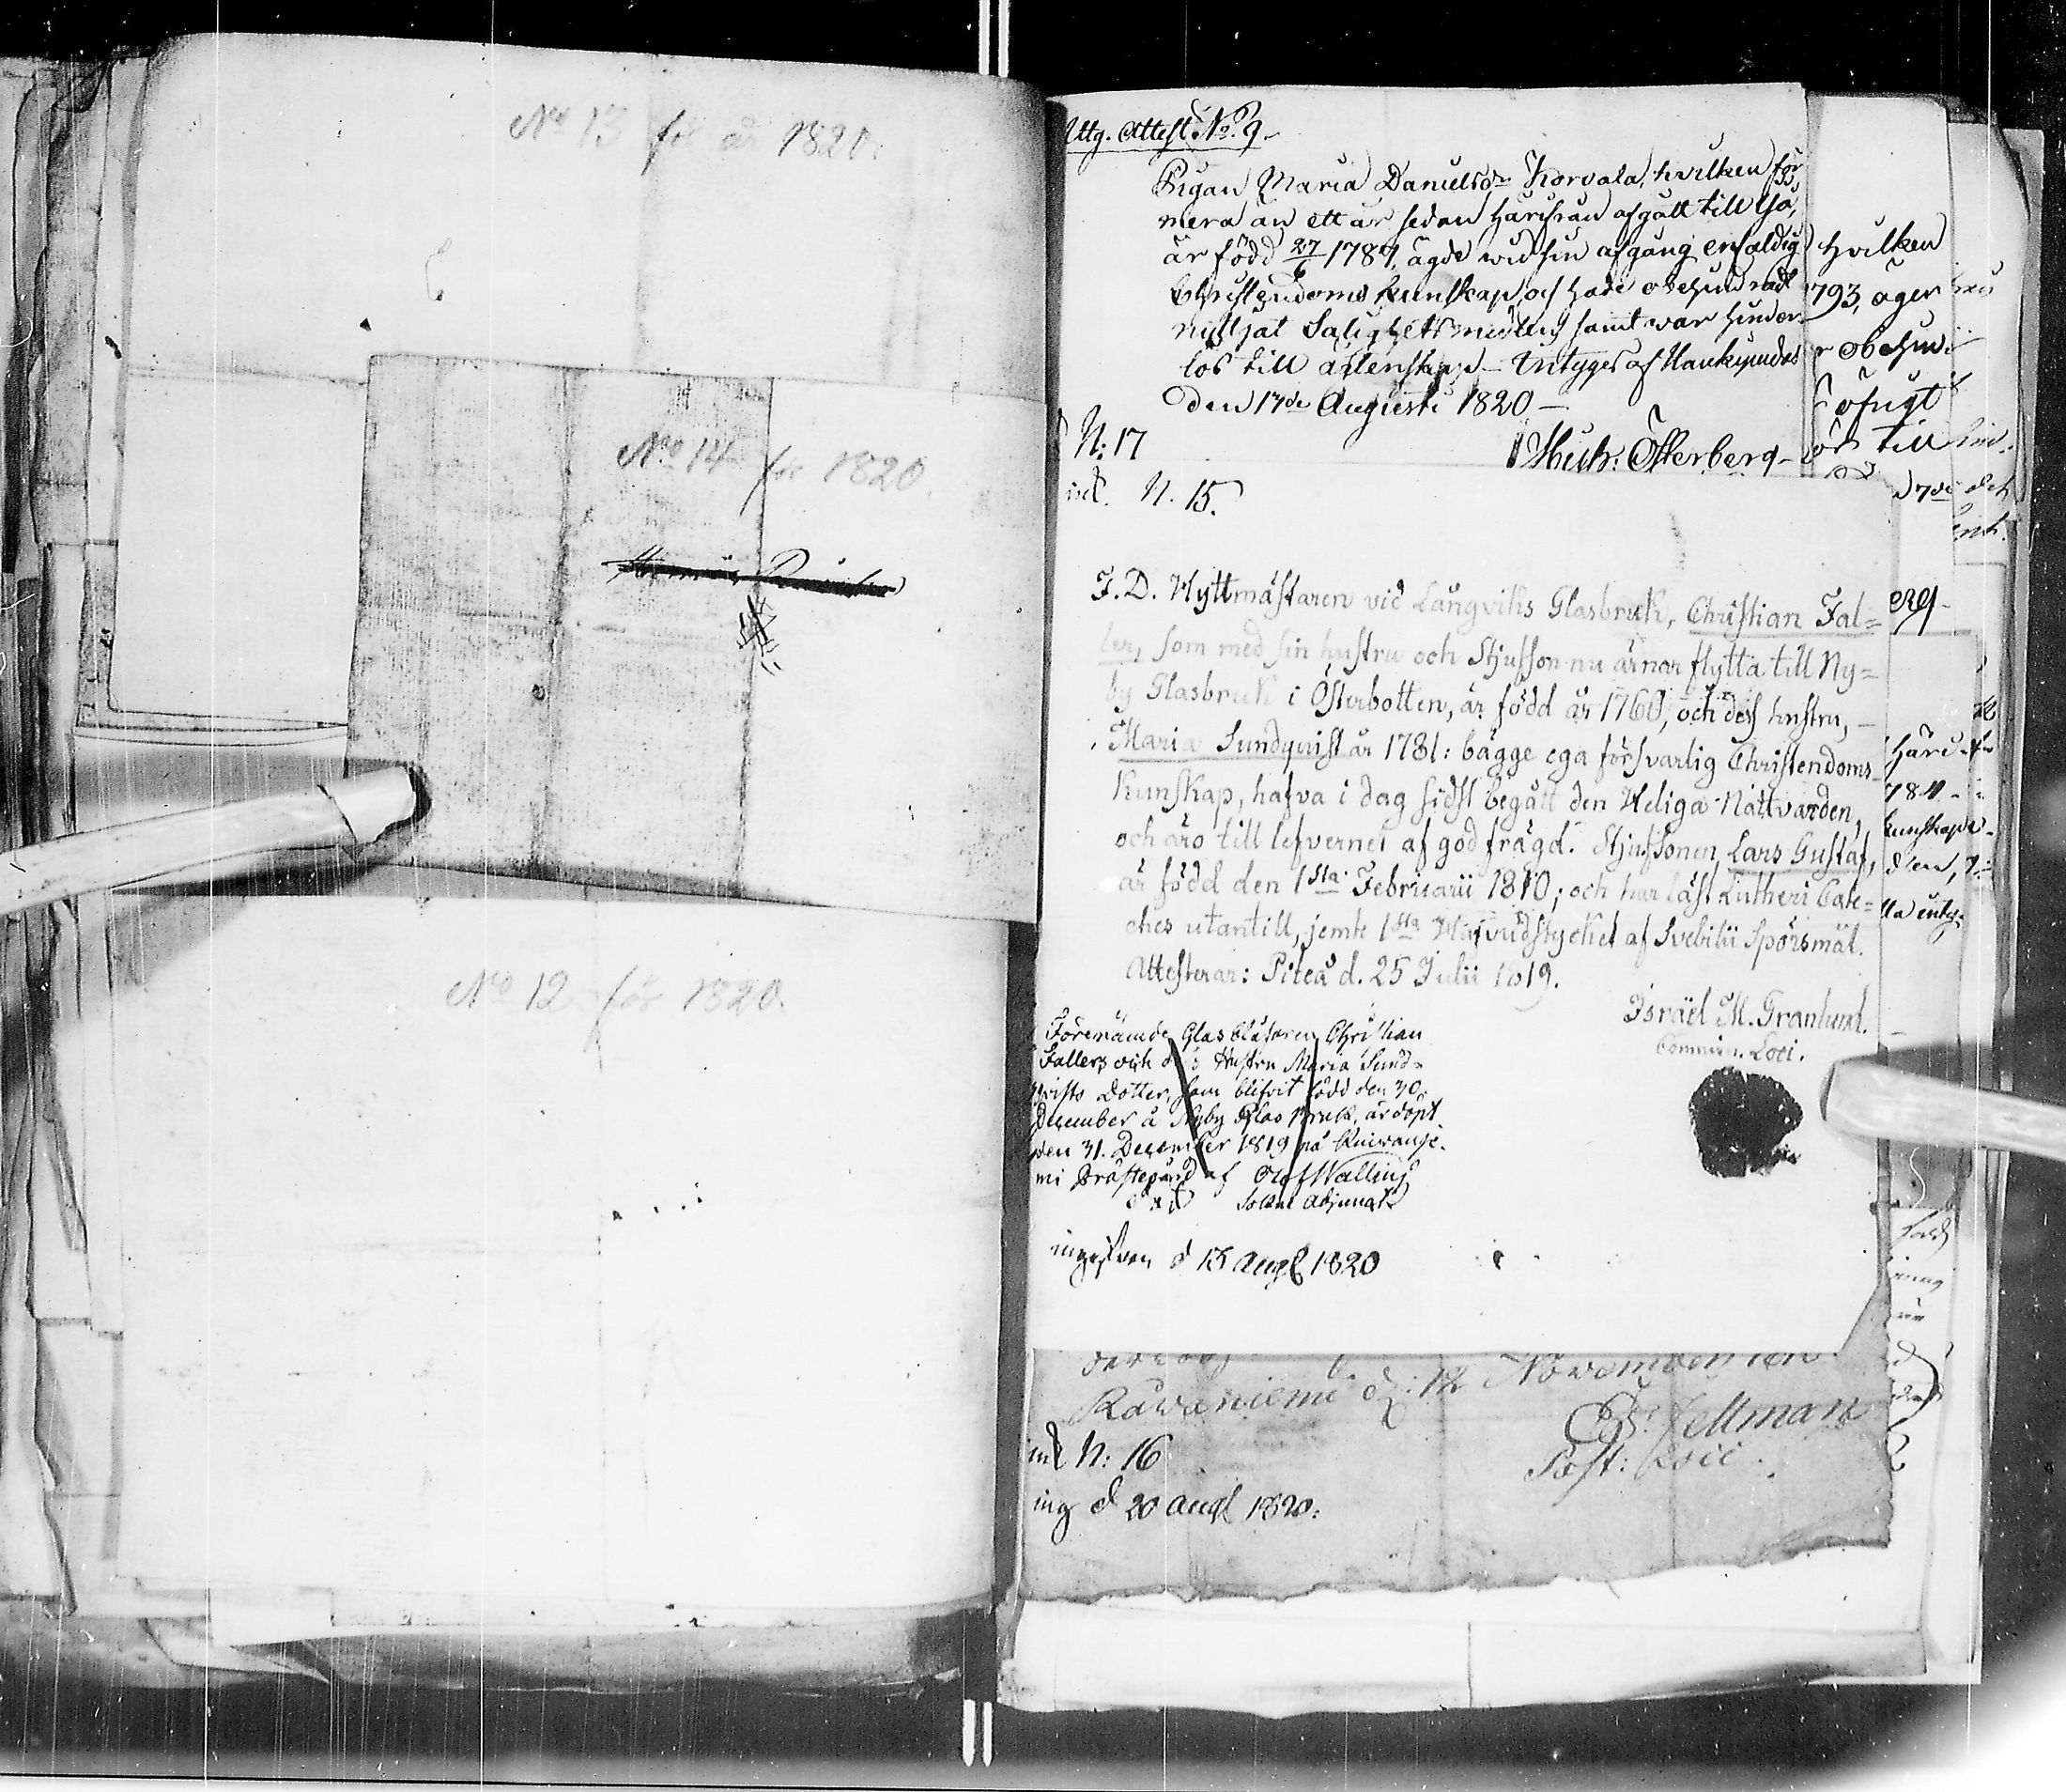 No 13 för år 1820.
No 14 för 1820.
No 12 för 1820.
Uttg. Attest No. 9.
Pigan Maria Danielsdr Korvala, hvilken för
mera än ett år sedan härifrån afgått till Ijo,
är född 27/6 1787, ägde wid sin afgång enfaldig
Christendoms kunskap, och hade obehindrad
nyttjat Salighetsmedlen samt war hinder-
lös till äktenskap – Intygas af
den 17de Augusti 1820 –
Mich: Österberg
N: 17
ind. N. 15.
hvilken
793, äger
obehind
öfrigt
ör till
F. D. Hyttmästaren vid Långviks Glasbruk, Christian Fal=
ler, som med sin hustru och Stjufson nu ärnar flytta till Ny=
by Glasbruk i Österbotten, är född år 1760, och dess hustru, –
Maria Sundqvist år 1781: bägge ega försvarlig Christendoms
Kunskap, hafva i dag sidst begått den Heliga Nattvarden,
och äro till lefvernet af god frägd. Stjufsonen Lars Gustaf,
är född den 1sta Februarii 1810; och har läst Lutheri Cate=
ches utantill, jemte 1sta Hufvudstycket af Svebilii Spörsmål.
Attesterar: Piteå d. 25 Julii 1819.
Israël M. Granlund.
Commin. Loci.
härif
784
kunskaps
den,
lla inty
Förenämde Glasblåsaren Christian
Fallers och dess Hustru Maria Sund-
qvists Dotter, som blifvit född den 30
December å Nyby Glas bruk, är döpt
den 31. December 1819 på Kuiwanje-
mi Prästegård af Olof Walling
Sockne Adjunct
ingifven d 15 Augt 1820
Råwaniemi d: 12 November
Es: Fellman
Past: Loci.
ind N: 16
ing d 20 Augt 1820.